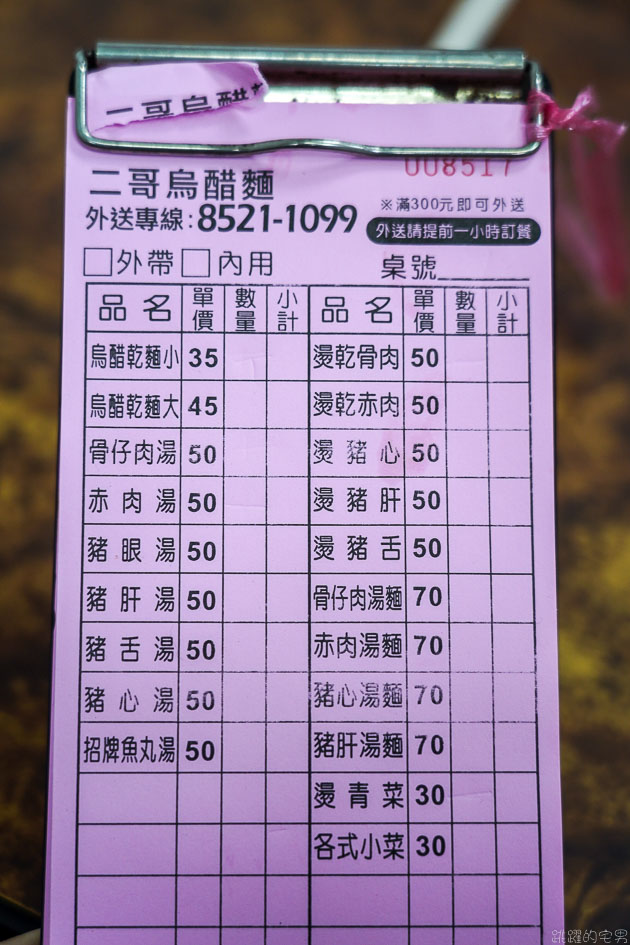 二哥烏醋
008517
二哥烏醋麵
外送專線:8521-1099
※滿300元即可外送
外送請提前一小時訂餐
□外帶□內用 桌號______
品名 單價 數量 小計 品名 單價 數量 小計
烏醋乾麵小 35 燙乾骨肉 50
烏醋乾麵大 45 燙乾赤肉 50
骨仔肉湯 50 燙豬心 50
赤肉湯 50 燙豬肝 50
豬眼湯 50 燙豬舌 50
豬肝湯 50 骨仔肉湯麵 70
豬舌湯 50 赤肉湯麵 70
豬心湯 50 豬心湯麵 70
招牌魚丸湯 50 豬肝湯麵 70
燙青菜 30
各式小菜 30
跳躍的宅男